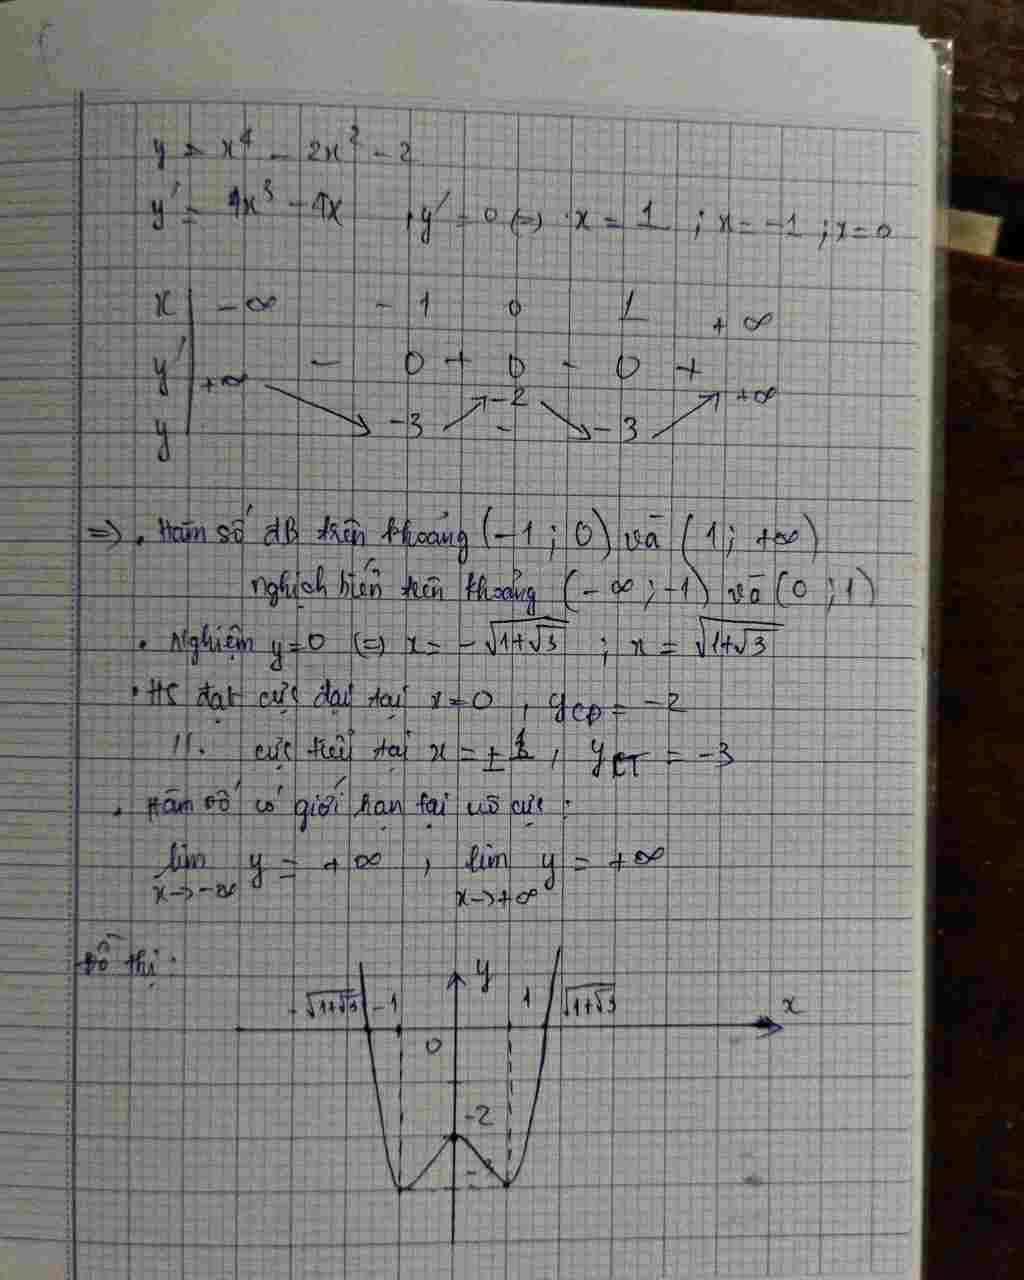 y = x⁴ - 2x² - 2
y' = 4x³ - 4x , y' = 0 (=) x = 1 ; x = -1 ; x = 0
x -∞ -1 0 1 +∞
y' - 0 + 0 - 0 +
y +∞ -3 -2 -3 +∞
=> . Hàm số ĐB trên khoảng (-1 ; 0) và (1 ; +∞)
nghịch biến trên khoảng (-∞ ; -1) và (0 ; 1)
. Nghiệm y=0 (=) x = -√(1+√3) ; x = √(1+√3)
. HS đạt cực đại tại x=0 , yCĐ = -2
//. cực tiểu tại x = ±1 , yCT = -3
. Hàm số có giới hạn tại vô cực :
lim y = +∞ , lim y = +∞
x->-∞ x->+∞
Đồ thị :
y
-√(1+√3) -1 1 √(1+√3) x
0
-2